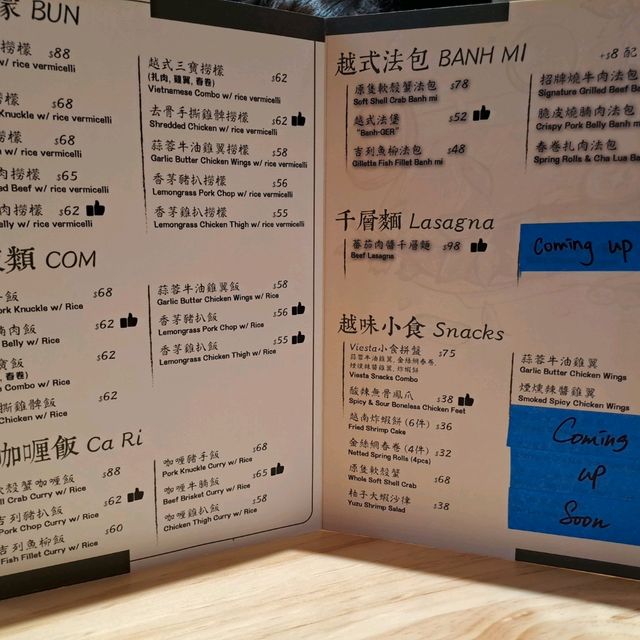 BUN
撈檬 $88
w/ rice vermicelli
撈檬 $68
Knuckle w/ rice vermicelli
撈檬 $68
w/ rice vermicelli
肉撈檬 $65
Beef w/ rice vermicelli
肉撈檬 $62
Belly w/ rice vermicelli
越式三寶撈檬 $62
(扎肉, 雞翼, 春卷)
Vietnamese Combo w/ rice vermicelli
去骨手撕雞髀撈檬 $62
Shredded Chicken w/ rice vermicelli
蒜蓉牛油雞翼撈檬 $58
Garlic Butter Chicken Wings w/ rice vermicelli
香茅豬扒撈檬 $56
Lemongrass Pork Chop w/ rice vermicelli
香茅雞扒撈檬 $55
Lemongrass Chicken Thigh w/ rice vermicelli
類 COM
飯 $68
Pork Knuckle w/ Rice
腩肉飯 $62
Belly w/ Rice
寶飯 $62
春卷)
Combo w/ Rice
撕雞髀飯 $62
Chicken w/ Rice
蒜蓉牛油雞翼飯 $58
Garlic Butter Chicken Wings w/ Rice
香茅豬扒飯 $56
Lemongrass Pork Chop w/ Rice
香茅雞扒飯 $55
Lemongrass Chicken Thigh w/ Rice
咖喱飯 Ca Ri
軟殼蟹咖喱飯 $88
Crab Curry w/ Rice
吉列豬扒飯 $62
Pork Chop Curry w/ Rice
吉列魚柳飯 $60
Fish Fillet Curry w/ Rice
咖喱豬手飯 $68
Pork Knuckle Curry w/ Rice
咖喱牛腩飯 $65
Beef Brisket Curry w/ Rice
咖喱雞扒飯 $58
Chicken Thigh Curry w/ Rice
越式法包 BANH MI
+$8 配
原隻軟殼蟹法包 $78
Soft Shell Crab Banh mi
越式法堡 $52
"Banh-GER"
吉列魚柳法包 $48
Gillette Fish Fillet Banh mi
招牌燒牛肉法包
Signature Grilled Beef Ba
脆皮燒腩肉法包
Crispy Pork Belly Banh m
春卷扎肉法包
Spring Rolls & Cha Lua Ba
千層麵 Lasagna
蕃茄肉醬千層麵 $98
Beef Lasagna
Coming up
越味小食 Snacks
Viesta小食拼盤 $75
蒜蓉牛油雞翼, 金絲網春卷,
煙燻辣醬雞翼, 炸蝦餅
Viesta Snacks Combo
酸辣無骨鳳爪 $38
Spicy & Sour Boneless Chicken Feet
越南炸蝦餅 (6件) $36
Fried Shrimp Cake
金絲網春卷 (4件) $32
Netted Spring Rolls (4pcs)
原隻軟殼蟹 $68
Whole Soft Shell Crab
柚子大蝦沙律 $38
Yuzu Shrimp Salad
蒜蓉牛油雞翼
Garlic Butter Chicken Wings
煙燻辣醬雞翼
Smoked Spicy Chicken Wings
Coming
up
Soon